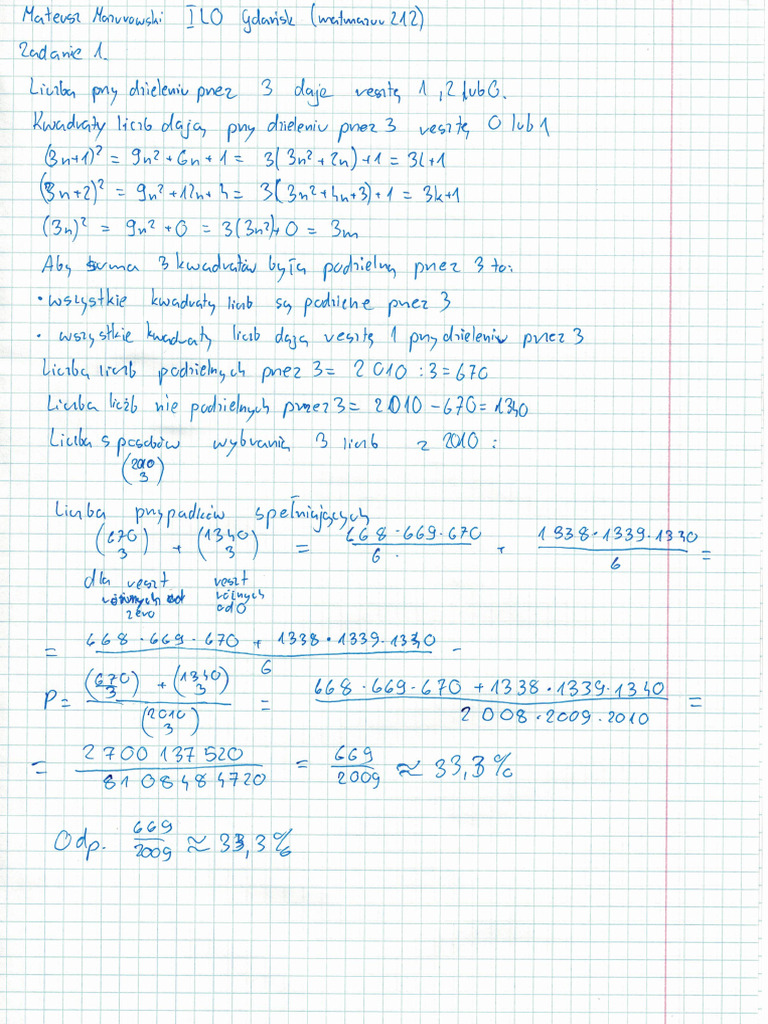 Mateusz Mazurowski I LO Gdańsk (matmazur212)
Zadanie 1.
Liczba przy dzieleniu przez 3 daje resztę 1, 2 lub 0.
Kwadraty liczb dają przy dzieleniu przez 3 resztę 0 lub 1
(3n+1)² = 9n² + 6n + 1 = 3(3n² + 2n) + 1 = 3l + 1
(3n+2)² = 9n² + 12n + 4 = 3(3n² + 4n + 3) + 1 = 3k + 1
(3n)² = 9n² + 0 = 3(3n²) + 0 = 3m
Aby suma 3 kwadratów była podzielna przez 3 to:
• wszystkie kwadraty liczb są podzielne przez 3
• wszystkie kwadraty liczb dają resztę 1 przy dzieleniu przez 3
Liczba liczb podzielnych przez 3 = 2010 : 3 = 670
Liczba liczb nie podzielnych przez 3 = 2010 - 670 = 1340
Liczba sposobów wybrania 3 liczb z 2010 :
(2010 3)
Liczba przypadków spełniających
(670 3) + (1340 3) = 668·669·670 / 6 + 1338·1339·1340 / 6 =
dla reszt zero reszt różnych od 0
= 668·669·670 + 1338·1339·1340 / 6
P = (670 3) + (1340 3) / (2010 3) = 668·669·670 + 1338·1339·1340 / 2008·2009·2010 =
= 2700137520 / 8108484720 = 669 / 2009 ≈ 33,3%
Odp. 669 / 2009 ≈ 33,3%